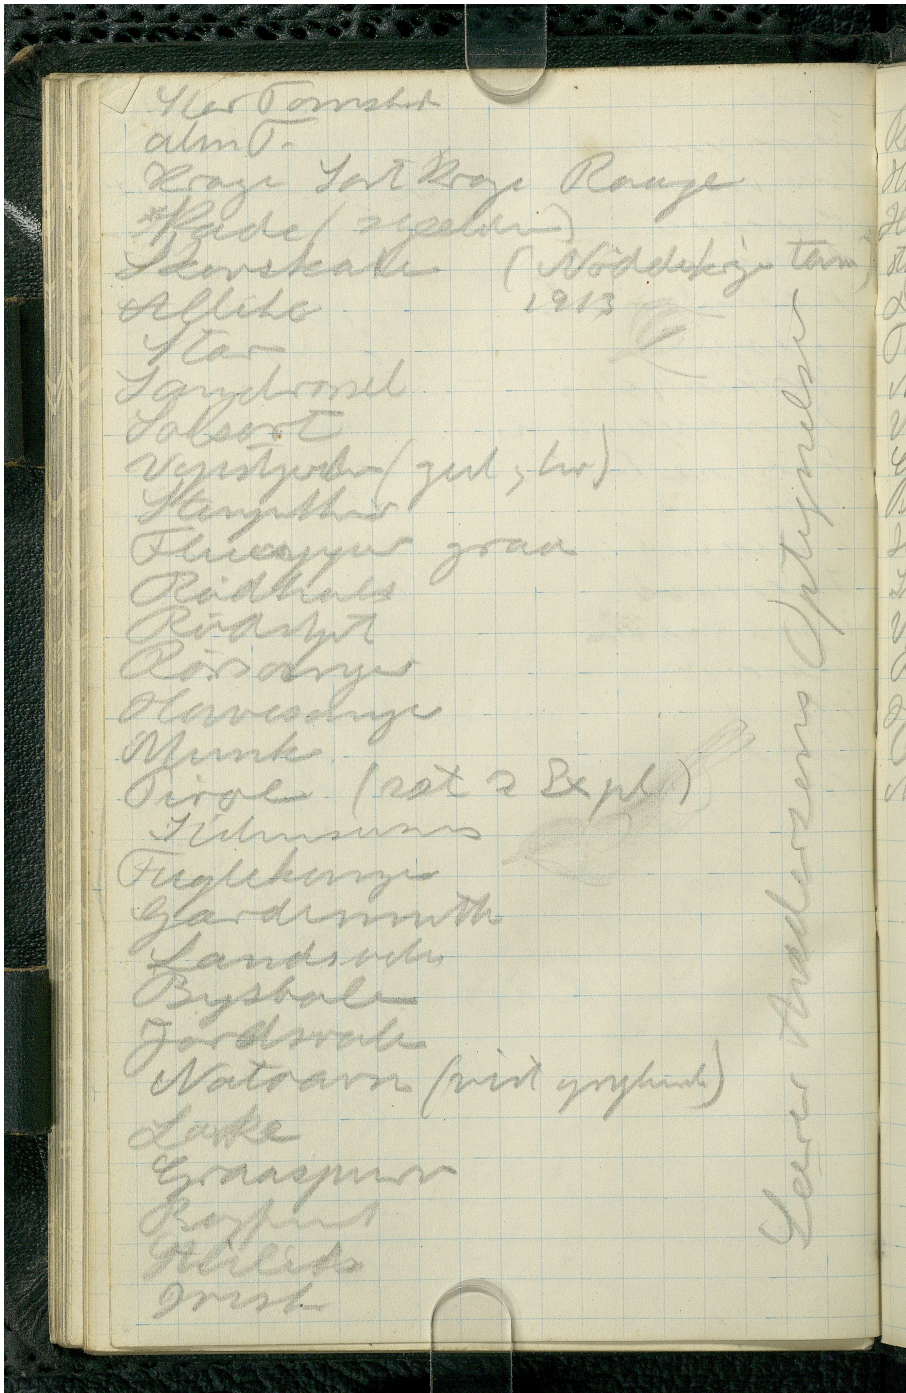 Stor Tornskade
alm T.
Krage Sort Krage Raage
Skade (sjælden)
Skovskade (Nöddebo
Allike 1913
Stær
Sangdrossel
Solsort
Vipstjert (gul, hv)
Stenpikker
Fluesnapper graa
Rödhals
Rödstjert
Rörsanger
Havesanger
Munk
Pirol (set 2 Expl.)
Fuglekonge
Gærdesmutte
Landsvale
Bysvale
Jordsvale
Natravn (vist ynglende)
Lærke
Graaspurv
Bogfink
Stillids
Irisk
Lærer Andersens Optegnelser